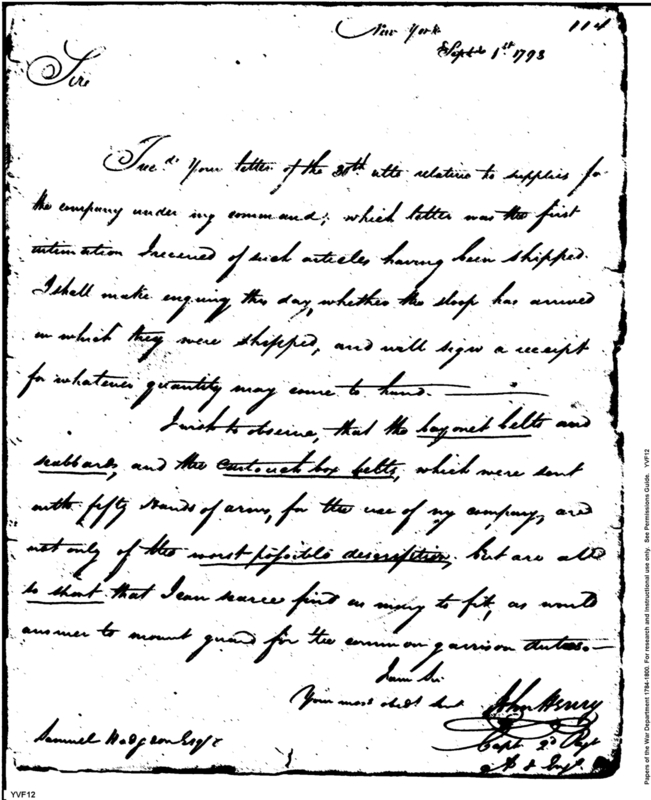 New York 114
Septr 1st 1793
Sir
I recd. Your letter of the 30th ulto relative to supplies for
the company under my command; which letter was the first
intimation I received of such articles having been shipped.
I shall make enquiry this day, whether the sloop has arrived
in which they were shipped, and will sign a receipt
for whatever quantity may come to hand.
I wish to observe, that the bayonet belts and
scabbards, and the Cartouch box belts, which were sent
with fifty stands of arms, for the use of my company, are
not only of the worst possible description, but are all
so short that I can scarce find as many to fit, as would
answer to mount guard for the common garrison duties.
I am Sir
Your most obedt Servt John Henry
Samuel Hodgdon Esqre Capt 2d Regt
A & Insp.
YVF12
Papers of the War Department 1784-1800. For research and instructional use only. See Permissions Guide. YVF12